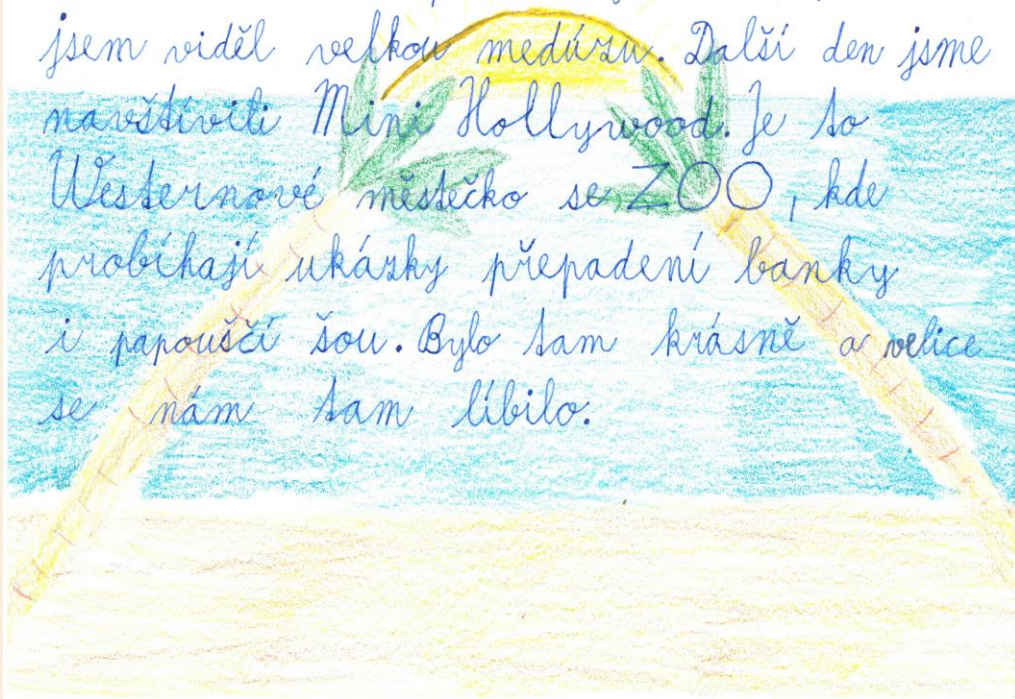 jsem viděl velkou medúzu. Další den jsme
navštívili Mini Hollywood. Je to
Westernové městečko se ZOO, kde
probíhají ukázky přepadení banky
i papouščí šou. Bylo tam krásně a velice
se nám tam líbilo.